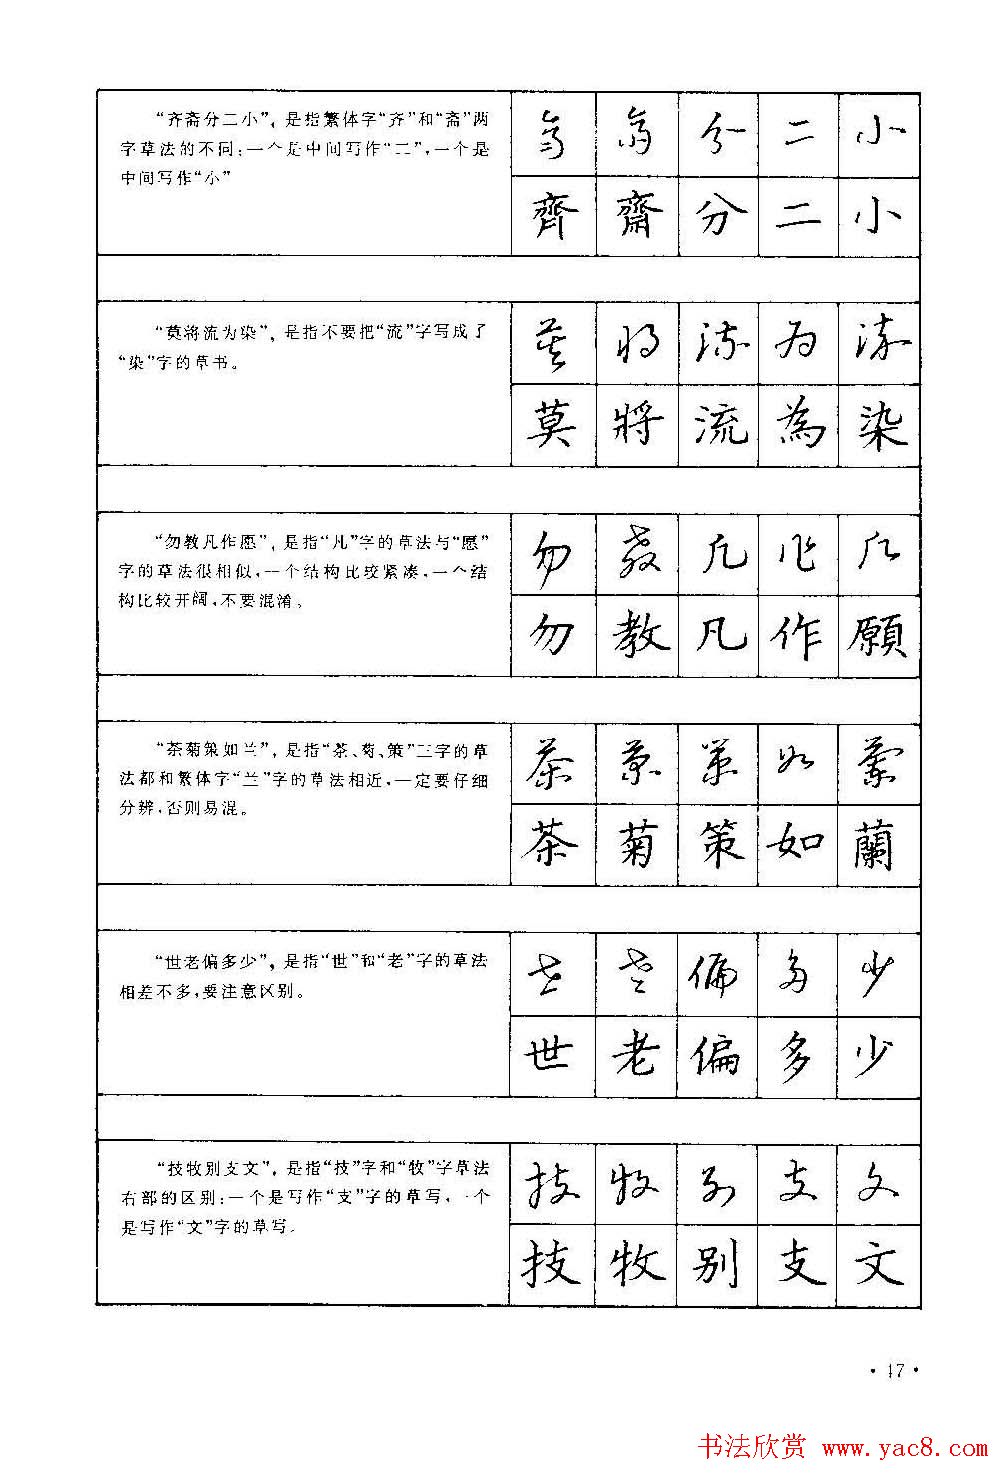 “齐斋分二小”，是指繁体字“齐”和“斋”两
字草法的不同：一个是中间写作“二”，一个是
中间写作“小”
齊 齋 分 二 小
齊 齋 分 二 小
“莫将流为染”，是指不要把“流”字写成了
“染”字的草书。
莫 將 流 為 染
莫 將 流 為 染
“勿教凡作愿”，是指“凡”字的草法与“愿”
字的草法很相似，一个结构比较紧凑，一个结
构比较开阔，不要混淆。
勿 教 凡 作 願
勿 教 凡 作 願
“茶菊策如兰”，是指“茶、菊、策”三字的草
法都和繁体字“兰”字的草法相近，一定要仔细
分辨，否则易混。
茶 菊 策 如 蘭
茶 菊 策 如 蘭
“世老偏多少”，是指“世”和“老”字的草法
相差不多，要注意区别。
世 老 偏 多 少
世 老 偏 多 少
“技牧别支文”，是指“技”字和“牧”字草法
右部的区别：一个是写作“支”字的草写，一个
是写作“文”字的草写。
技 牧 别 支 文
技 牧 别 支 文
·17·
书法欣赏 www.yac8.com